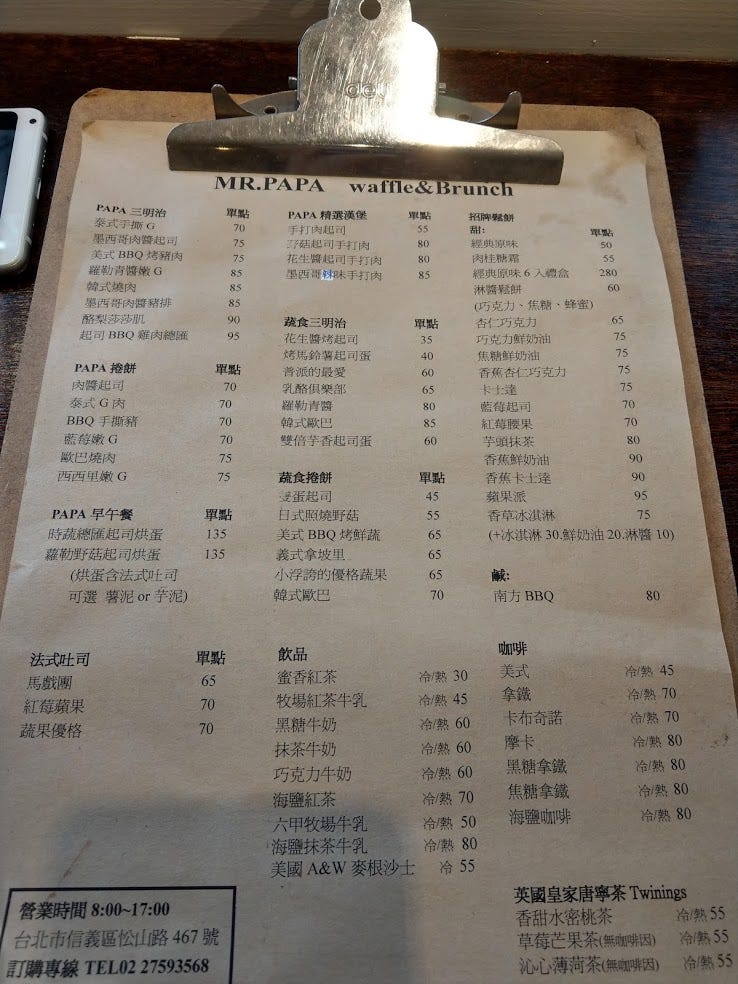 deli
MR.PAPA waffle&Brunch
PAPA 三明治 單點
泰式手撕 G 70
墨西哥肉醬起司 75
美式 BBQ 烤豬肉 75
羅勒青醬嫩 G 85
韓式燒肉 85
墨西哥肉醬豬排 85
酪梨莎莎肌 90
起司 BBQ 雞肉總匯 95
PAPA 捲餅 單點
肉醬起司 70
泰式 G 肉 70
BBQ 手撕豬 70
藍莓嫩 G 70
歐巴燒肉 75
西西里嫩 G 75
PAPA 早午餐 單點
時蔬總匯起司烘蛋 135
蘿勒野菇起司烘蛋 135
(烘蛋含法式吐司
可選 薯泥 or 芋泥)
法式吐司 單點
馬戲團 65
紅莓蘋果 70
蔬果優格 70
PAPA 精選漢堡 單點
手打肉起司 55
野菇起司手打肉 80
花生醬起司手打肉 80
墨西哥辣味手打肉 85
蔬食三明治 單點
花生醬烤起司 35
烤馬鈴薯起司蛋 40
普派的最愛 60
乳酪俱樂部 65
羅勒青醬 80
韓式歐巴 85
雙倍芋香起司蛋 60
蔬食捲餅 單點
雙蛋起司 45
日式照燒野菇 55
美式 BBQ 烤鮮蔬 65
義式拿坡里 65
小浮誇的優格蔬果 65
韓式歐巴 70
飲品
蜜香紅茶 冷/熱 30
牧場紅茶牛乳 冷/熱 45
黑糖牛奶 冷/熱 60
抹茶牛奶 冷/熱 60
巧克力牛奶 冷/熱 60
海鹽紅茶 冷/熱 70
六甲牧場牛乳 冷/熱 50
海鹽抹茶牛乳 冷/熱 80
美國 A&W 麥根沙士 冷 55
招牌鬆餅
甜: 單點
經典原味 50
肉桂糖霜 55
經典原味 6 入禮盒 280
淋醬鬆餅
(巧克力、焦糖、蜂蜜)
杏仁巧克力 65
巧克力鮮奶油 75
焦糖鮮奶油 75
香蕉杏仁巧克力 75
卡士達 75
藍莓起司 70
紅莓腰果 70
芋頭抹茶 80
香蕉鮮奶油 90
香蕉卡士達 90
蘋果派 95
香草冰淇淋 75
(+冰淇淋 30.鮮奶油 20.淋醬 10)
鹹:
南方 BBQ 80
咖啡
美式 冷/熱 45
拿鐵 冷/熱 70
卡布奇諾 冷/熱 70
摩卡 冷/熱 80
黑糖拿鐵 冷/熱 80
焦糖拿鐵 冷/熱 80
海鹽咖啡 冷/熱 80
英國皇家唐寧茶 Twinings
香甜水密桃茶 冷/熱 55
草莓芒果茶(無咖啡因) 冷/熱 55
沁心薄荷茶(無咖啡因) 冷/熱 55
營業時間 8:00~17:00
台北市信義區松山路 467 號
訂購專線 TEL02 27593568